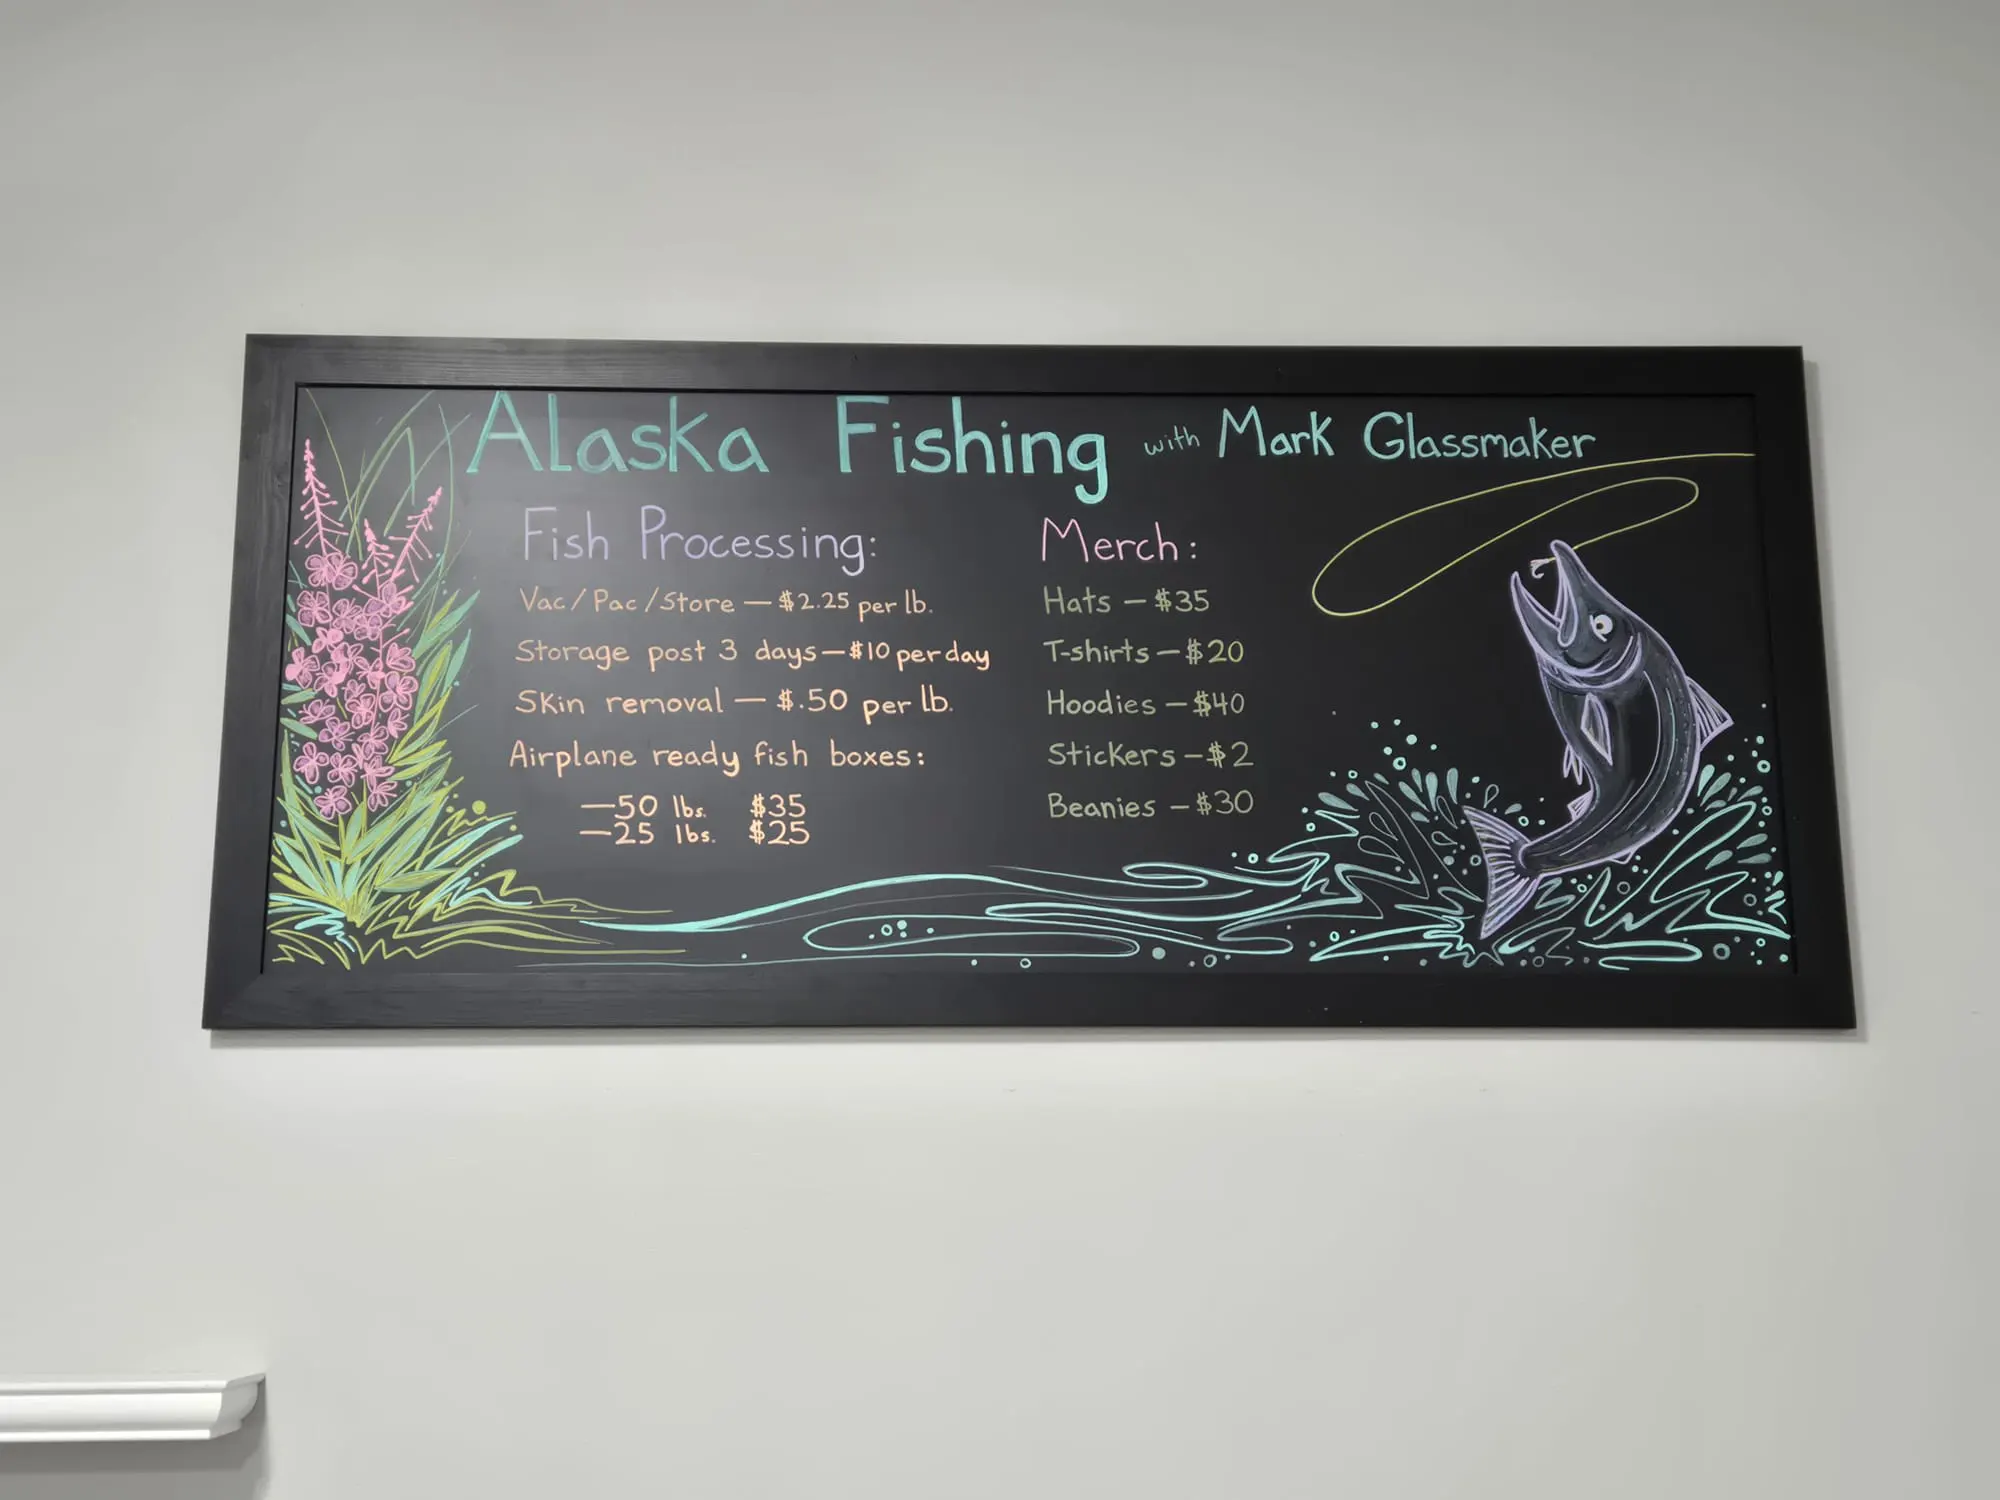 Alaska Fishing with Mark Glassmaker
Fish Processing:
Vac/Pac/Store — $2.25 per lb.
Storage post 3 days — $10 per day
Skin removal — $.50 per lb.
Airplane ready fish boxes:
—50 lbs. $35
—25 lbs. $25
Merch:
Hats — $35
T-shirts — $20
Hoodies — $40
Stickers — $2
Beanies — $30